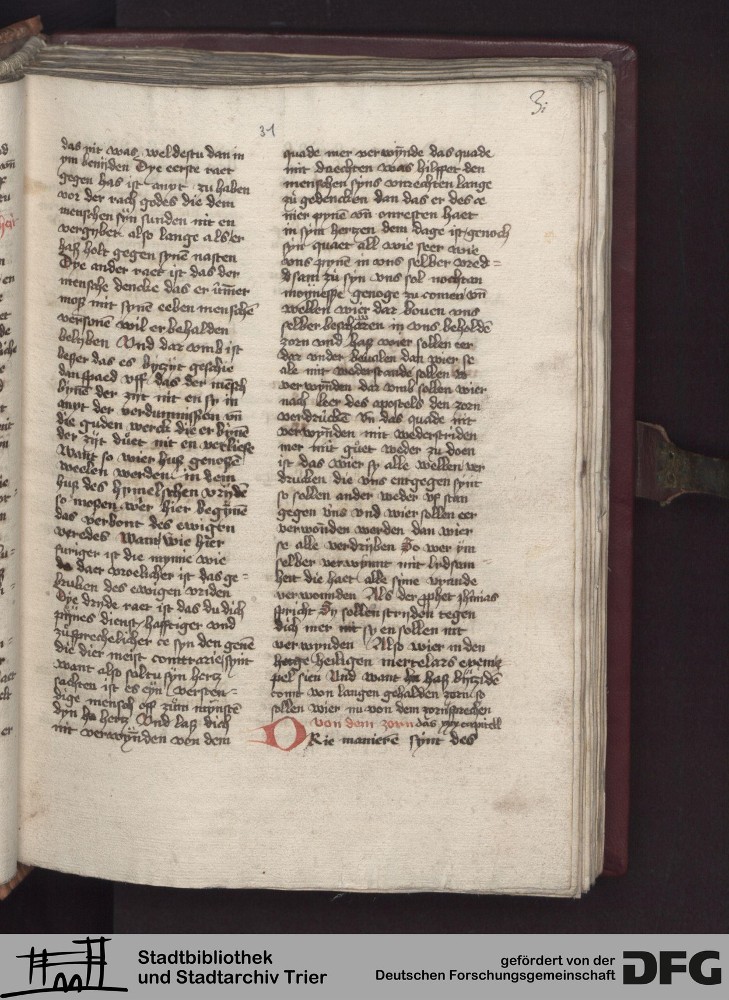 31
3i
das nit was weldestu dan in
ym benijden Dye eerste raet
gegen has ist anxt zu haben
vor der rach godes die dem
menschen syn sunden nit en
vergybet also lange als er
hasz holt gegen synē nasten
Dye ander raet ist das der
mensche dencke das er ūmer
mosz mit synē eeben menschē
versonē wil er behalden
belyben Vnd dar vmb ist
besser das es bytzijt geschie
dan spaed vff das der mesch
bynnē der zijt nit en sy in
anxt der verdumnissen vn̄
die guden werck die er bynnē
der zijt duet nit en verliese
Want so wier husz genossē
weelen werden in dem
husz des hymelschen vrydē
so mossen wer hier begynnē
das verbont des ewigen
vredes Want wie hier
furiger ist die mynne wie
daer vroelicher ist das ge=
bruken des ewigen vriden
Dye drijde raet ist das du dich
pijnes dienst hafftiger vnd
zusprechelicher ce syn den genē
die dier meist contrarie synt
want also saltu syn hertz
sachten ist es eyn versten=
dige mensch off zum mynstē
dyn hertz Vnd lasz dich
nit verwynden von dem
quade mer verwynde das quade
mit duechten was hilffet den
menschen syns vnrechten lange
zu gedencken dan das er des ce
mer pynē vn̄ onresten haet
in sym hertzen dem dage ist genoch
syn quaet all wie seer wie
vns pynē in vns selber vred=
dsam zu syn vns sol nochtan
moynesse genoge zu comen vn̄
wellen wier dar boven vns
selber bescharen in vns beholdē
zorn vnd hasz wier sollen eer
dar vnder devalen dan wier se
ale mit wederstande sollen
verwynden dar vmb sollen wier
nach leer des apostels den zorn
verdrucken vn̄ das quade mit
verwynden mit wederstriden
mer mit guet weder zu doen
ist das wier sy alle wellen ver
drucken die vns entgegen synt
so sollen ander weder vp stan
gegen vns vnd wier sollen eer
verwonden werden dan wier
se alle verdrijben So wer ym
selber verwynnt mit lydsam
heit die haet alle syne vyande
verwounden Als der
spricht Sy sollen strijden tegen
dich mer nit sy en sollen nit
verwynden Also wier in den
heiligen mertelars exem
pel sien Vnd want hasz bytzidē
comt von langen gehalden zorn so
sollen wier nu von dem zorn sprechen
von dem zorn das xxx capittell
DRie manierē synt des
Stadtbibliothek
und Stadtarchiv Trier
gefördert von der
Deutschen Forschungsgemeinschaft
DFG